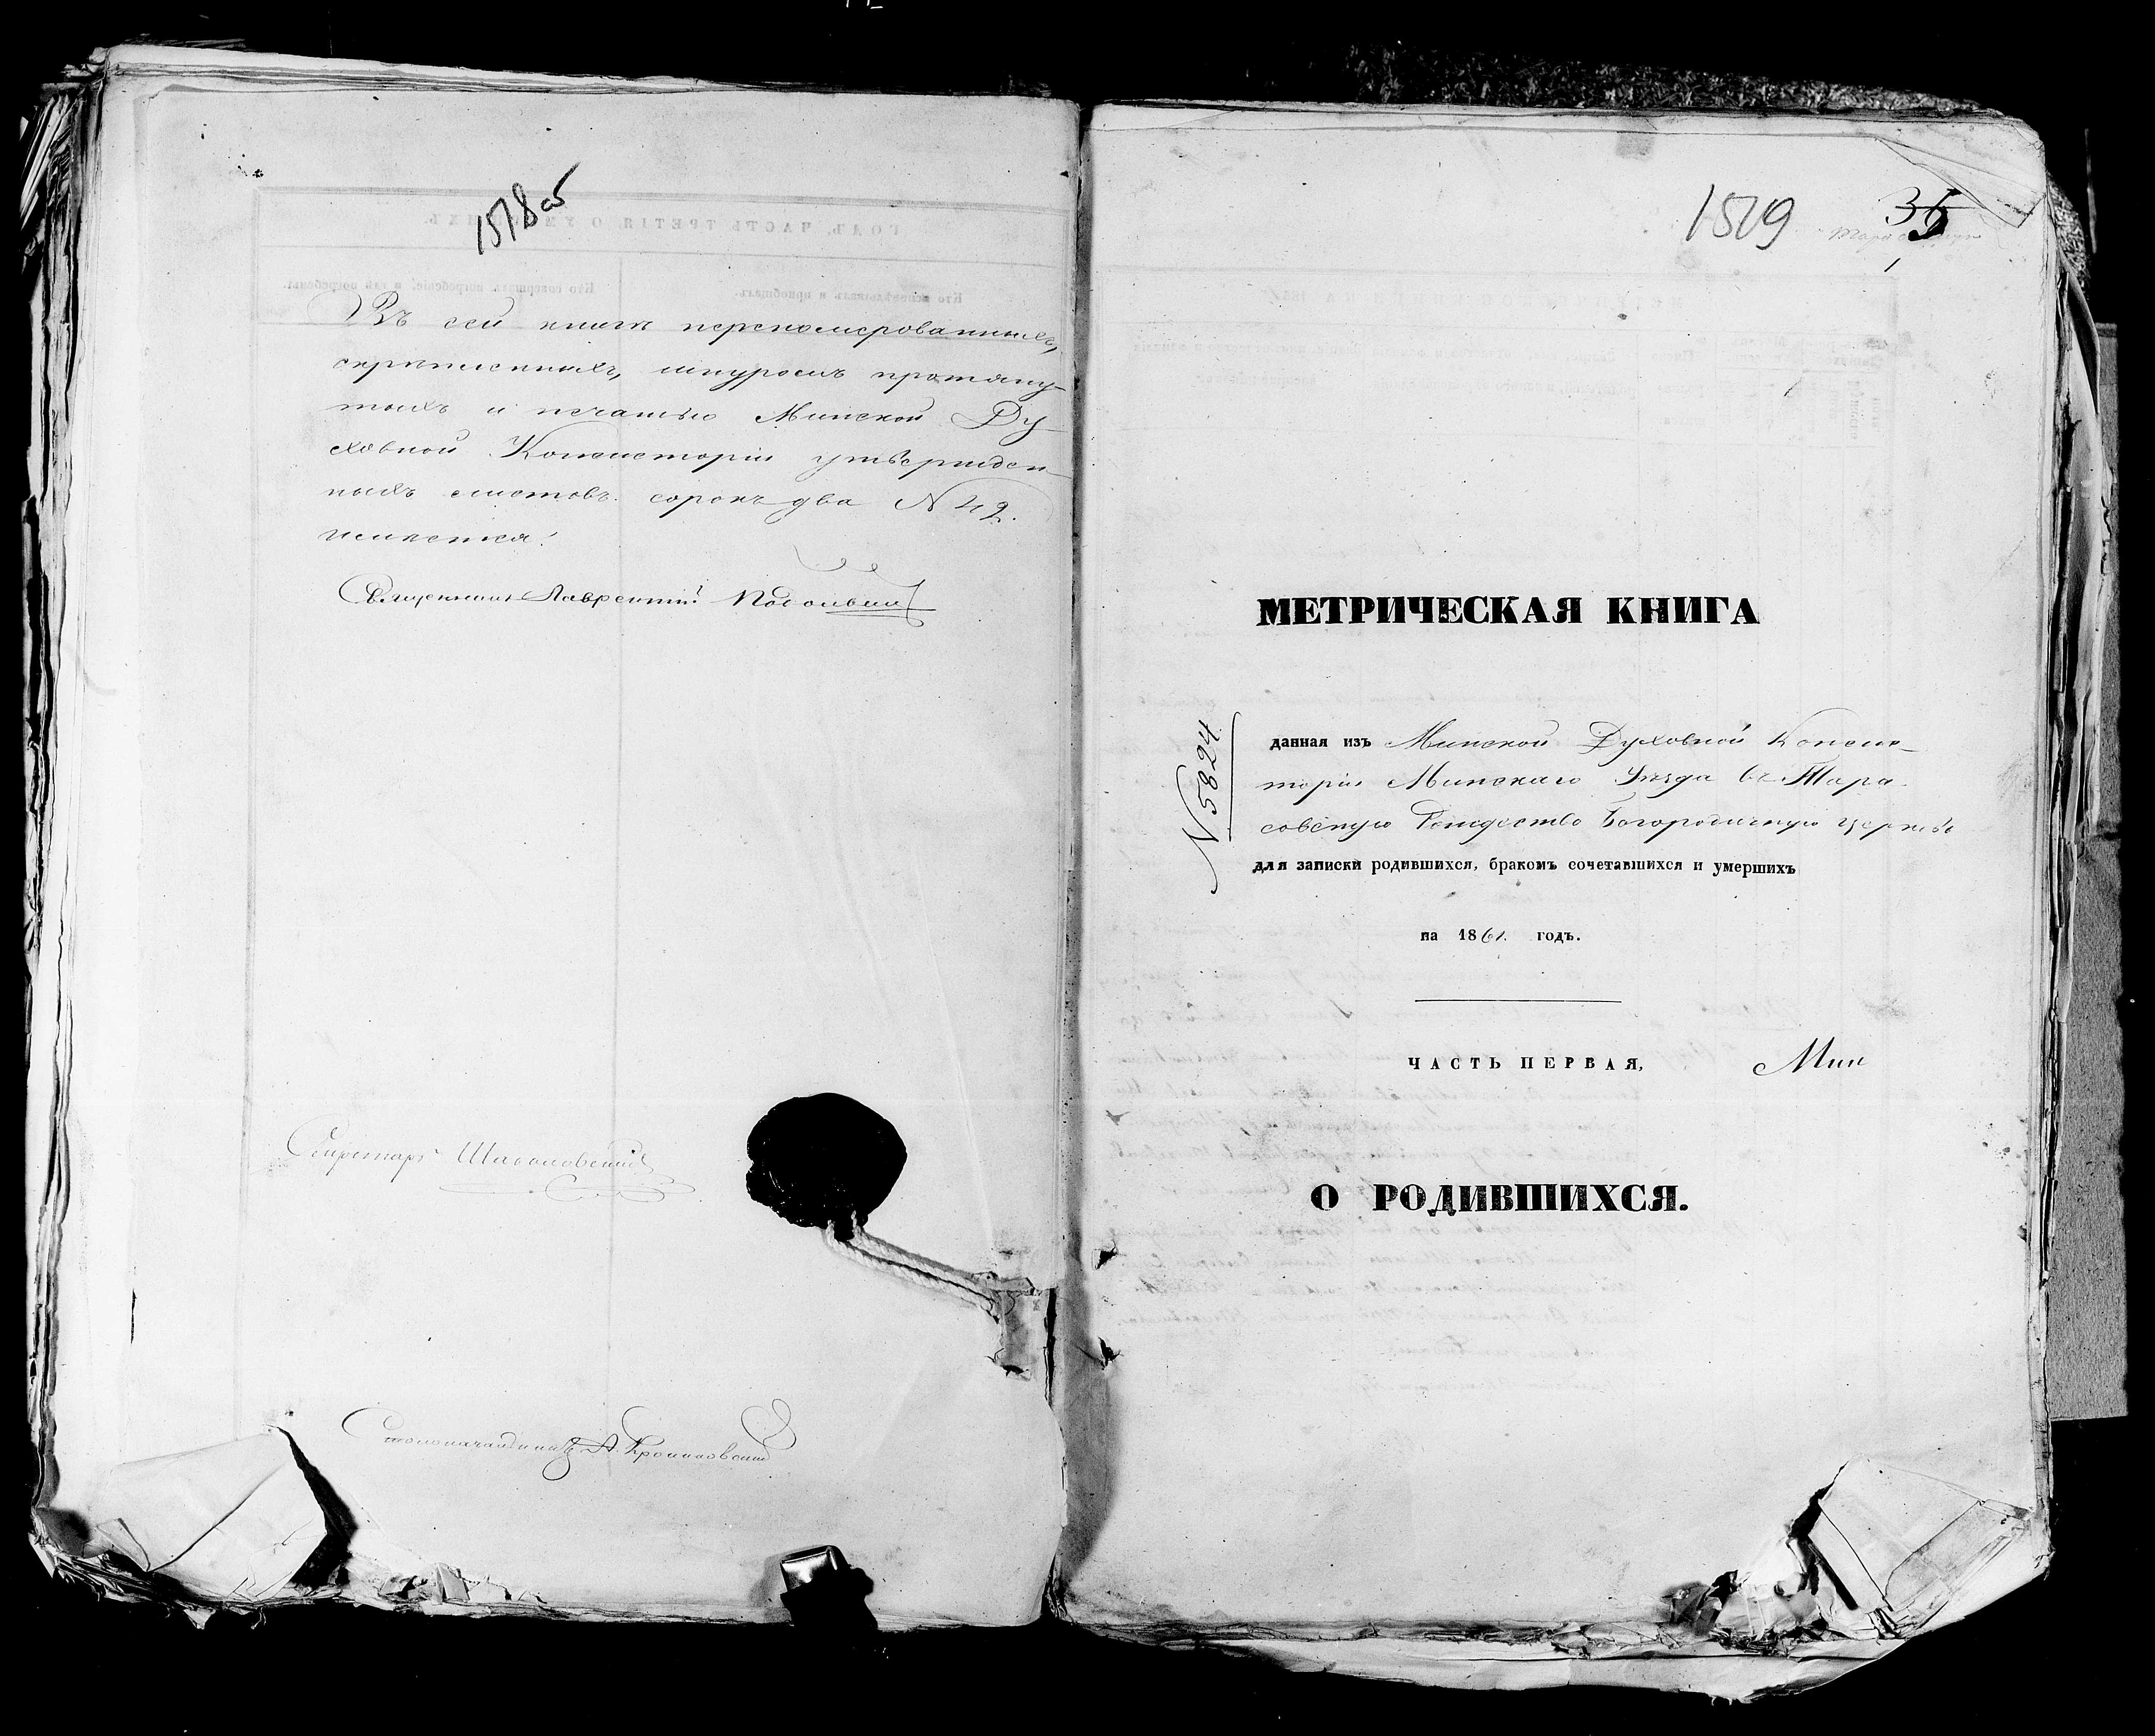 1518об
Въ сей книгѣ переномерованныхъ,
скрѣпленныхъ, шнуромъ протяну-
тыхъ и печатью Минской Ду-
ховной Консисторіи утвержден-
ныхъ листовъ сорокъ два N 42.
имѣется.
Священникъ Лаврентій
Секретарь
Столоначальникъ А.
1519
МЕТРИЧЕСКАЯ КНИГА
N 5824
данная изъ Минской Духовной Консис-
торіи Минскаго Уѣзда въ Тара-
совскую Рождество Богородичную церковь
для записки родившихся, бракомъ сочетавшихся и умершихъ
на 1861. годъ.
ЧАСТЬ ПЕРВАЯ, Мин
О РОДИВШИХСЯ.